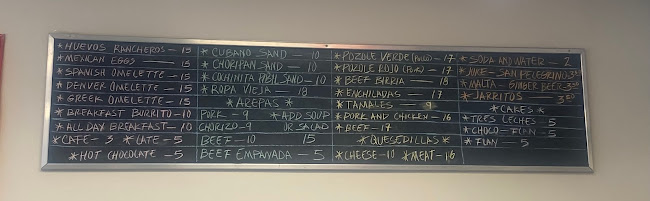 *HUEVOS RANCHEROS - 15
*MEXICAN EGGS - 15
*SPANISH OMELETTE - 15
*DENVER OMELETTE - 15
*GREEK OMELETTE - 15
*BREAKFAST BURRITO - 10
*ALL DAY BREAKFAST - 10
*CAFE - 3 *LATE - 5
*HOT CHOCOLATE - 5
*CUBANO SAND - 10
*CHORIPAN SAND - 10
*COCHINITA PIBIL SAND - 10
*ROPA VIEJA - 18
*AREPAS*
PORK - 9 *ADD SOUP
CHORIZO - 9 OR SALAD
BEEF - 10 15
BEEF EMPANADA - 5
*POZOLE VERDE (POLLO) - 17
*POZOLE ROJO (PORK) - 17
*BEEF BIRRIA - 18
*ENCHILADAS - 17
*TAMALES - 9
*PORK AND CHICKEN - 16
*BEEF - 17
*QUESEDILLAS*
*CHEESE - 10 *MEAT - 16
*SODA AND WATER - 2
*JUICE - SAN PELEGRINO
*MALTA - GINGER BEER 3.50
*JARRITOS - 3.50
*CAKES*
*TRES LECHES - 5
*CHOCO - FLAN - 5
*FLAN - 5